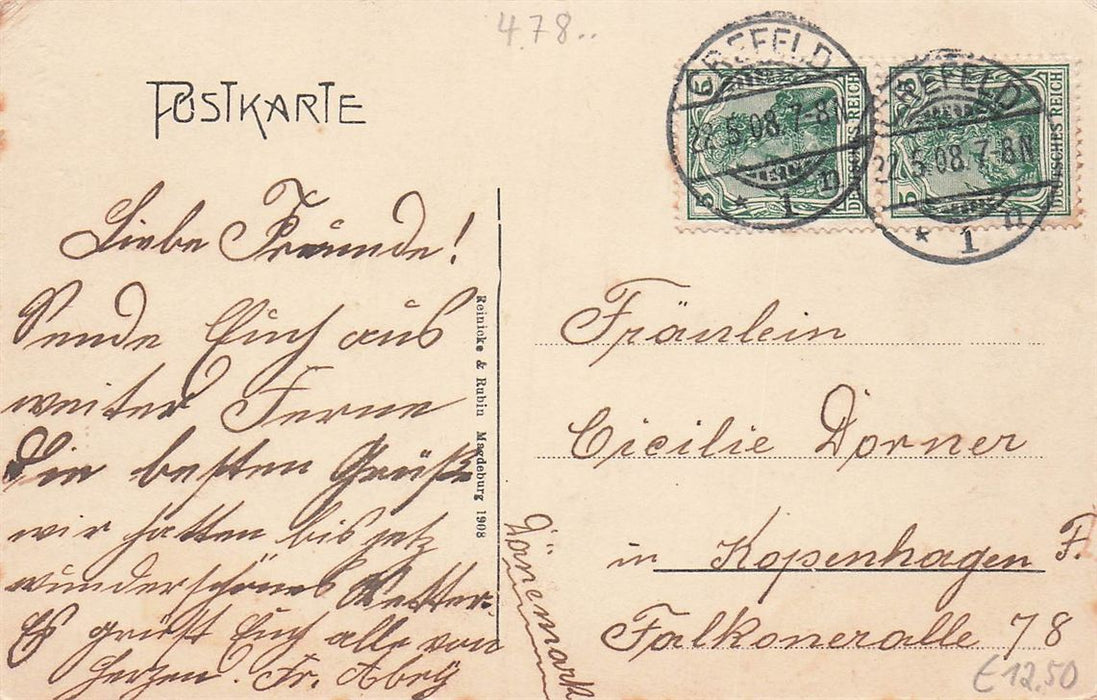 4.78..
POSTKARTE
CREFELD
22.5.08.7-8N
* 1 n
DEUTSCHES REICH
5
5
CREFELD
22.5.08.7-8N
* 1 n
DEUTSCHES REICH
5
5
Liebe Freunde!
Sende Euch aus
weiter Ferne
Die besten Grüße
wir hatten bis jetz
wunderschönes Wetter.
Es grüßt Euch alle von
Herzen. Fr.
Reinicke & Rubin Magdeburg 1908
Fräulein
Cicilie Dorner
in Kopenhagen F.
Falkoneralle 78
Dänemark
€ 12,50